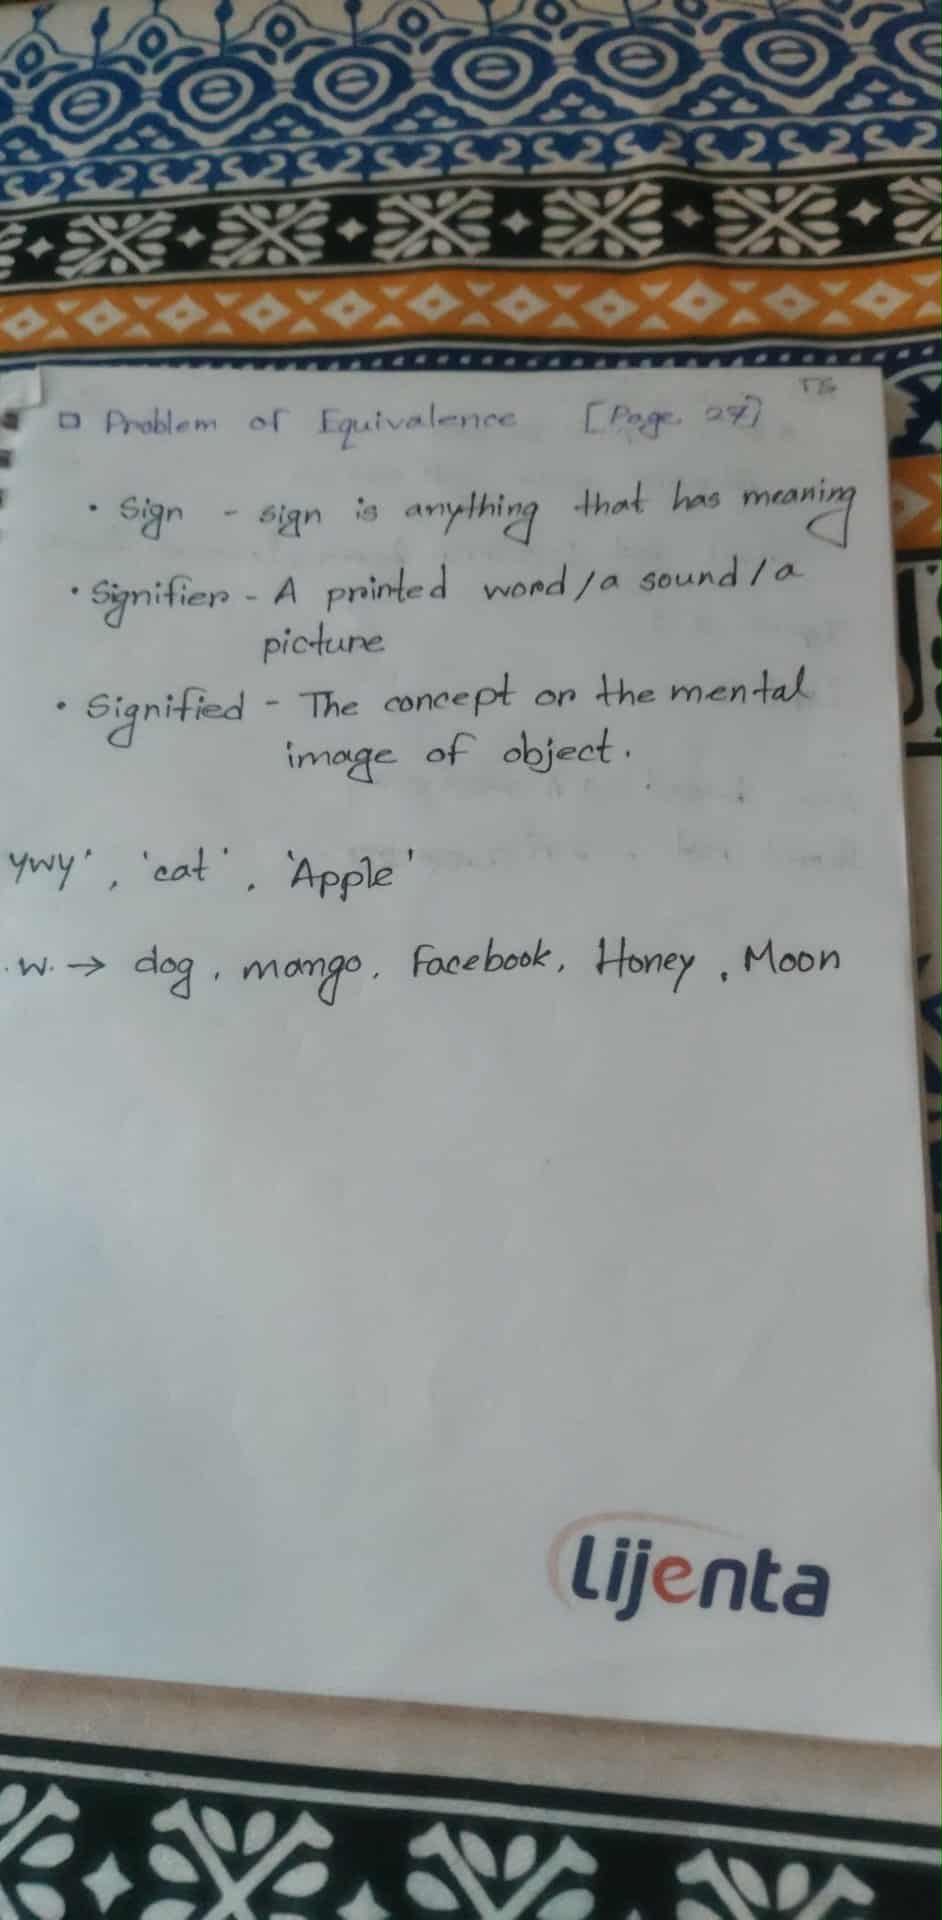 Problem of Equivalence [Page 27]
TS
• Sign - sign is anything that has meaning
• Signifier - A printed word/a sound/a
picture
• Signified - The concept or the mental
image of object.
ywy', 'cat', 'Apple'
.W. → dog, mango, Facebook, Honey, Moon
Lijenta